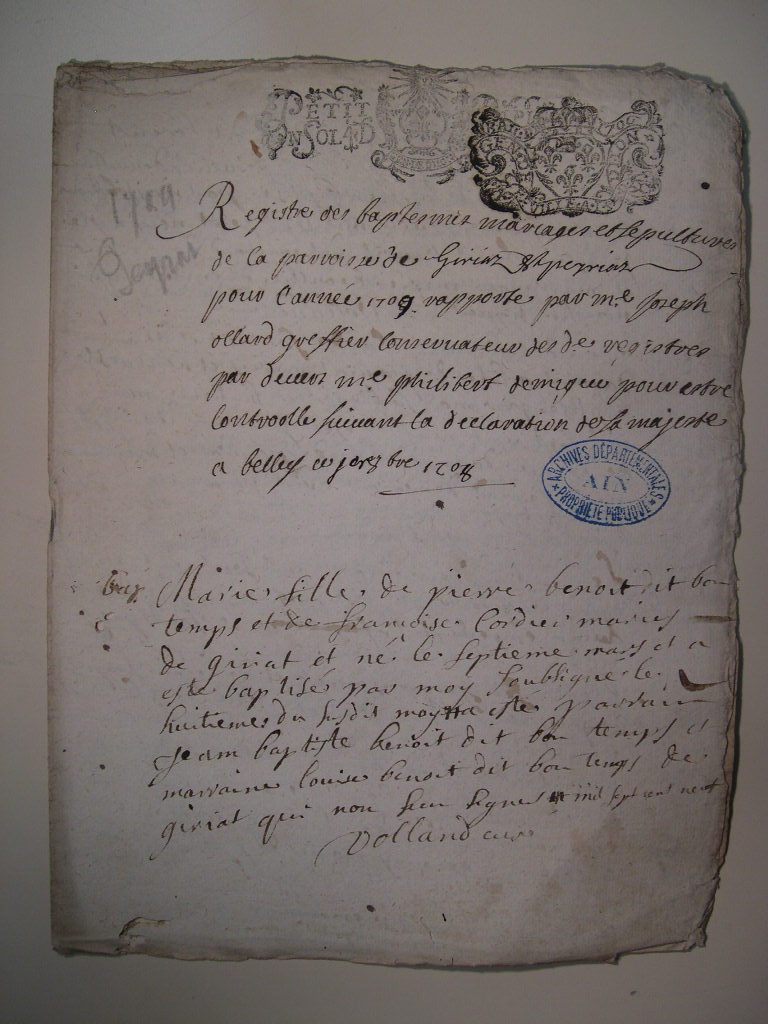 PETIT
EN SOL D
1709
Registre des baptesmes mariages et sepultures
de la parroisse de Giriaz et peyriaz
pour l'année 1709 rapporte par me Joseph
ollard greffier Conservateur des de registres
par devers me philibert pour estre
Controolle suivant la declaration de sa majeste
a belley ce xbre 1708
ARCHIVES DÉPARTEMENTALES
AIN
PROPRIÉTÉ PUBLIQUE
bap
Marie fille de pierre benoit dit bon
temps et de francoise Cordier maries
de giriat et né le septieme mars et a
esté baptisé par moy soubsigné le
huitiemes du susdit moy a esté parrain
Jean baptiste benoit dit bon temps et
marraine louise benoit dit bon temps de
giriat qui non sceu signer mil sept cens neuf
Dolland curé